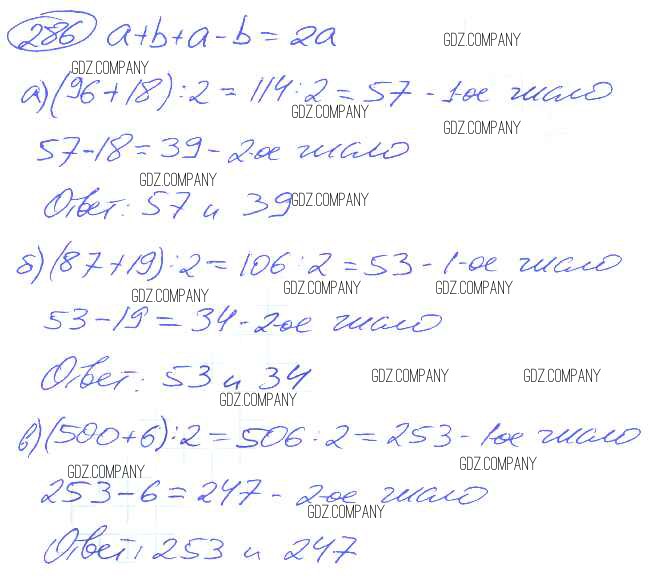 286 a+b+a-b=2a GDZ.COMPANY
GDZ.COMPANY
а) (96+18):2=114:2=57 - 1-ое число
GDZ.COMPANY
GDZ.COMPANY
57-18=39 - 2-ое число
GDZ.COMPANY
Ответ: 57 и 39 GDZ.COMPANY
б) (87+19):2=106:2=53 - 1-ое число
GDZ.COMPANY GDZ.COMPANY GDZ.COMPANY
53-19=34 - 2-ое число
Ответ: 53 и 34 GDZ.COMPANY GDZ.COMPANY
GDZ.COMPANY
в) (500+6):2=506:2=253 - 1-ое число
GDZ.COMPANY GDZ.COMPANY
253-6=247 - 2-ое число
GDZ.COMPANY
Ответ: 253 и 247